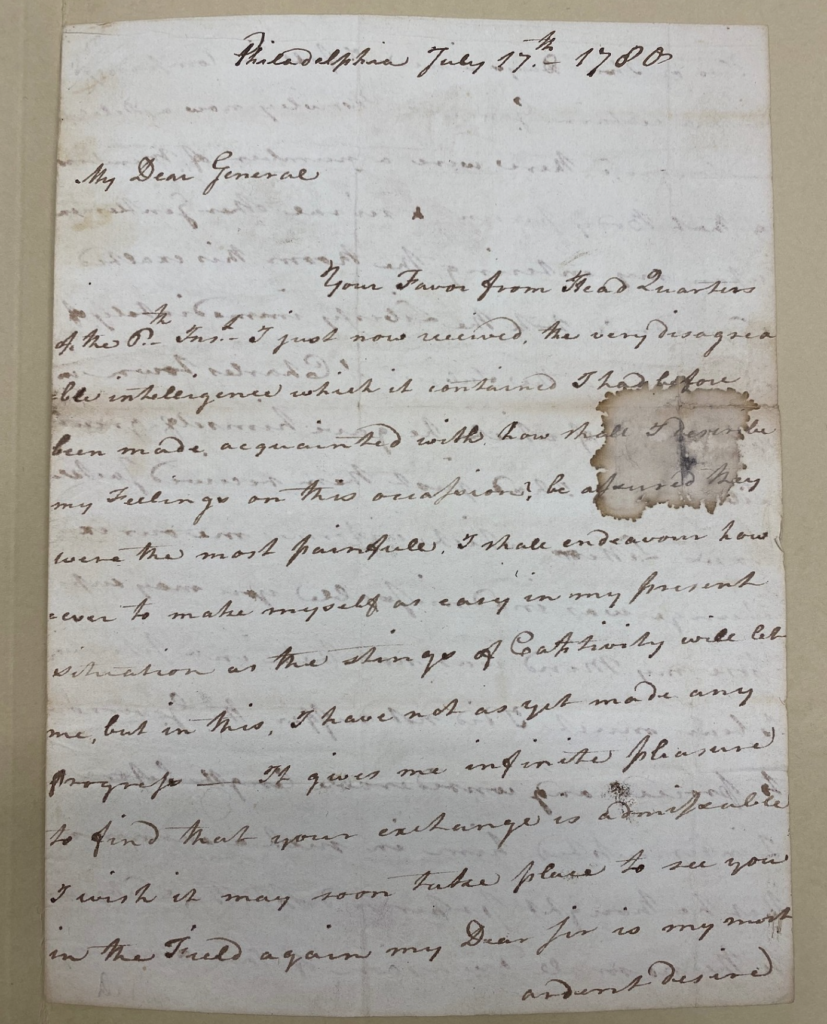 Philadelphia July 17.th 1780
My Dear General
Your Favor from Head Quarters
of the 6.th Ins.t I just now received, the very disagrea
=ble intelligence which it contained I had before
been made, acquainted with, how shall I describe
my Feelings on this occassion? be assured they
were the most painfull, I shall endeavour how
=ever to make myself as easy in my present
situation as the stings of Captivity will let
me, but in this, I have not as yet made any
progress — It gives me infinite pleasure
to find that your exchange is admissable
I wish it may soon take place to see you
in the Field again my Dear Sir is my most
ardent desire